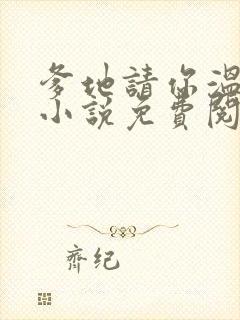 爹地請你溫
小說免費閱
齊紀